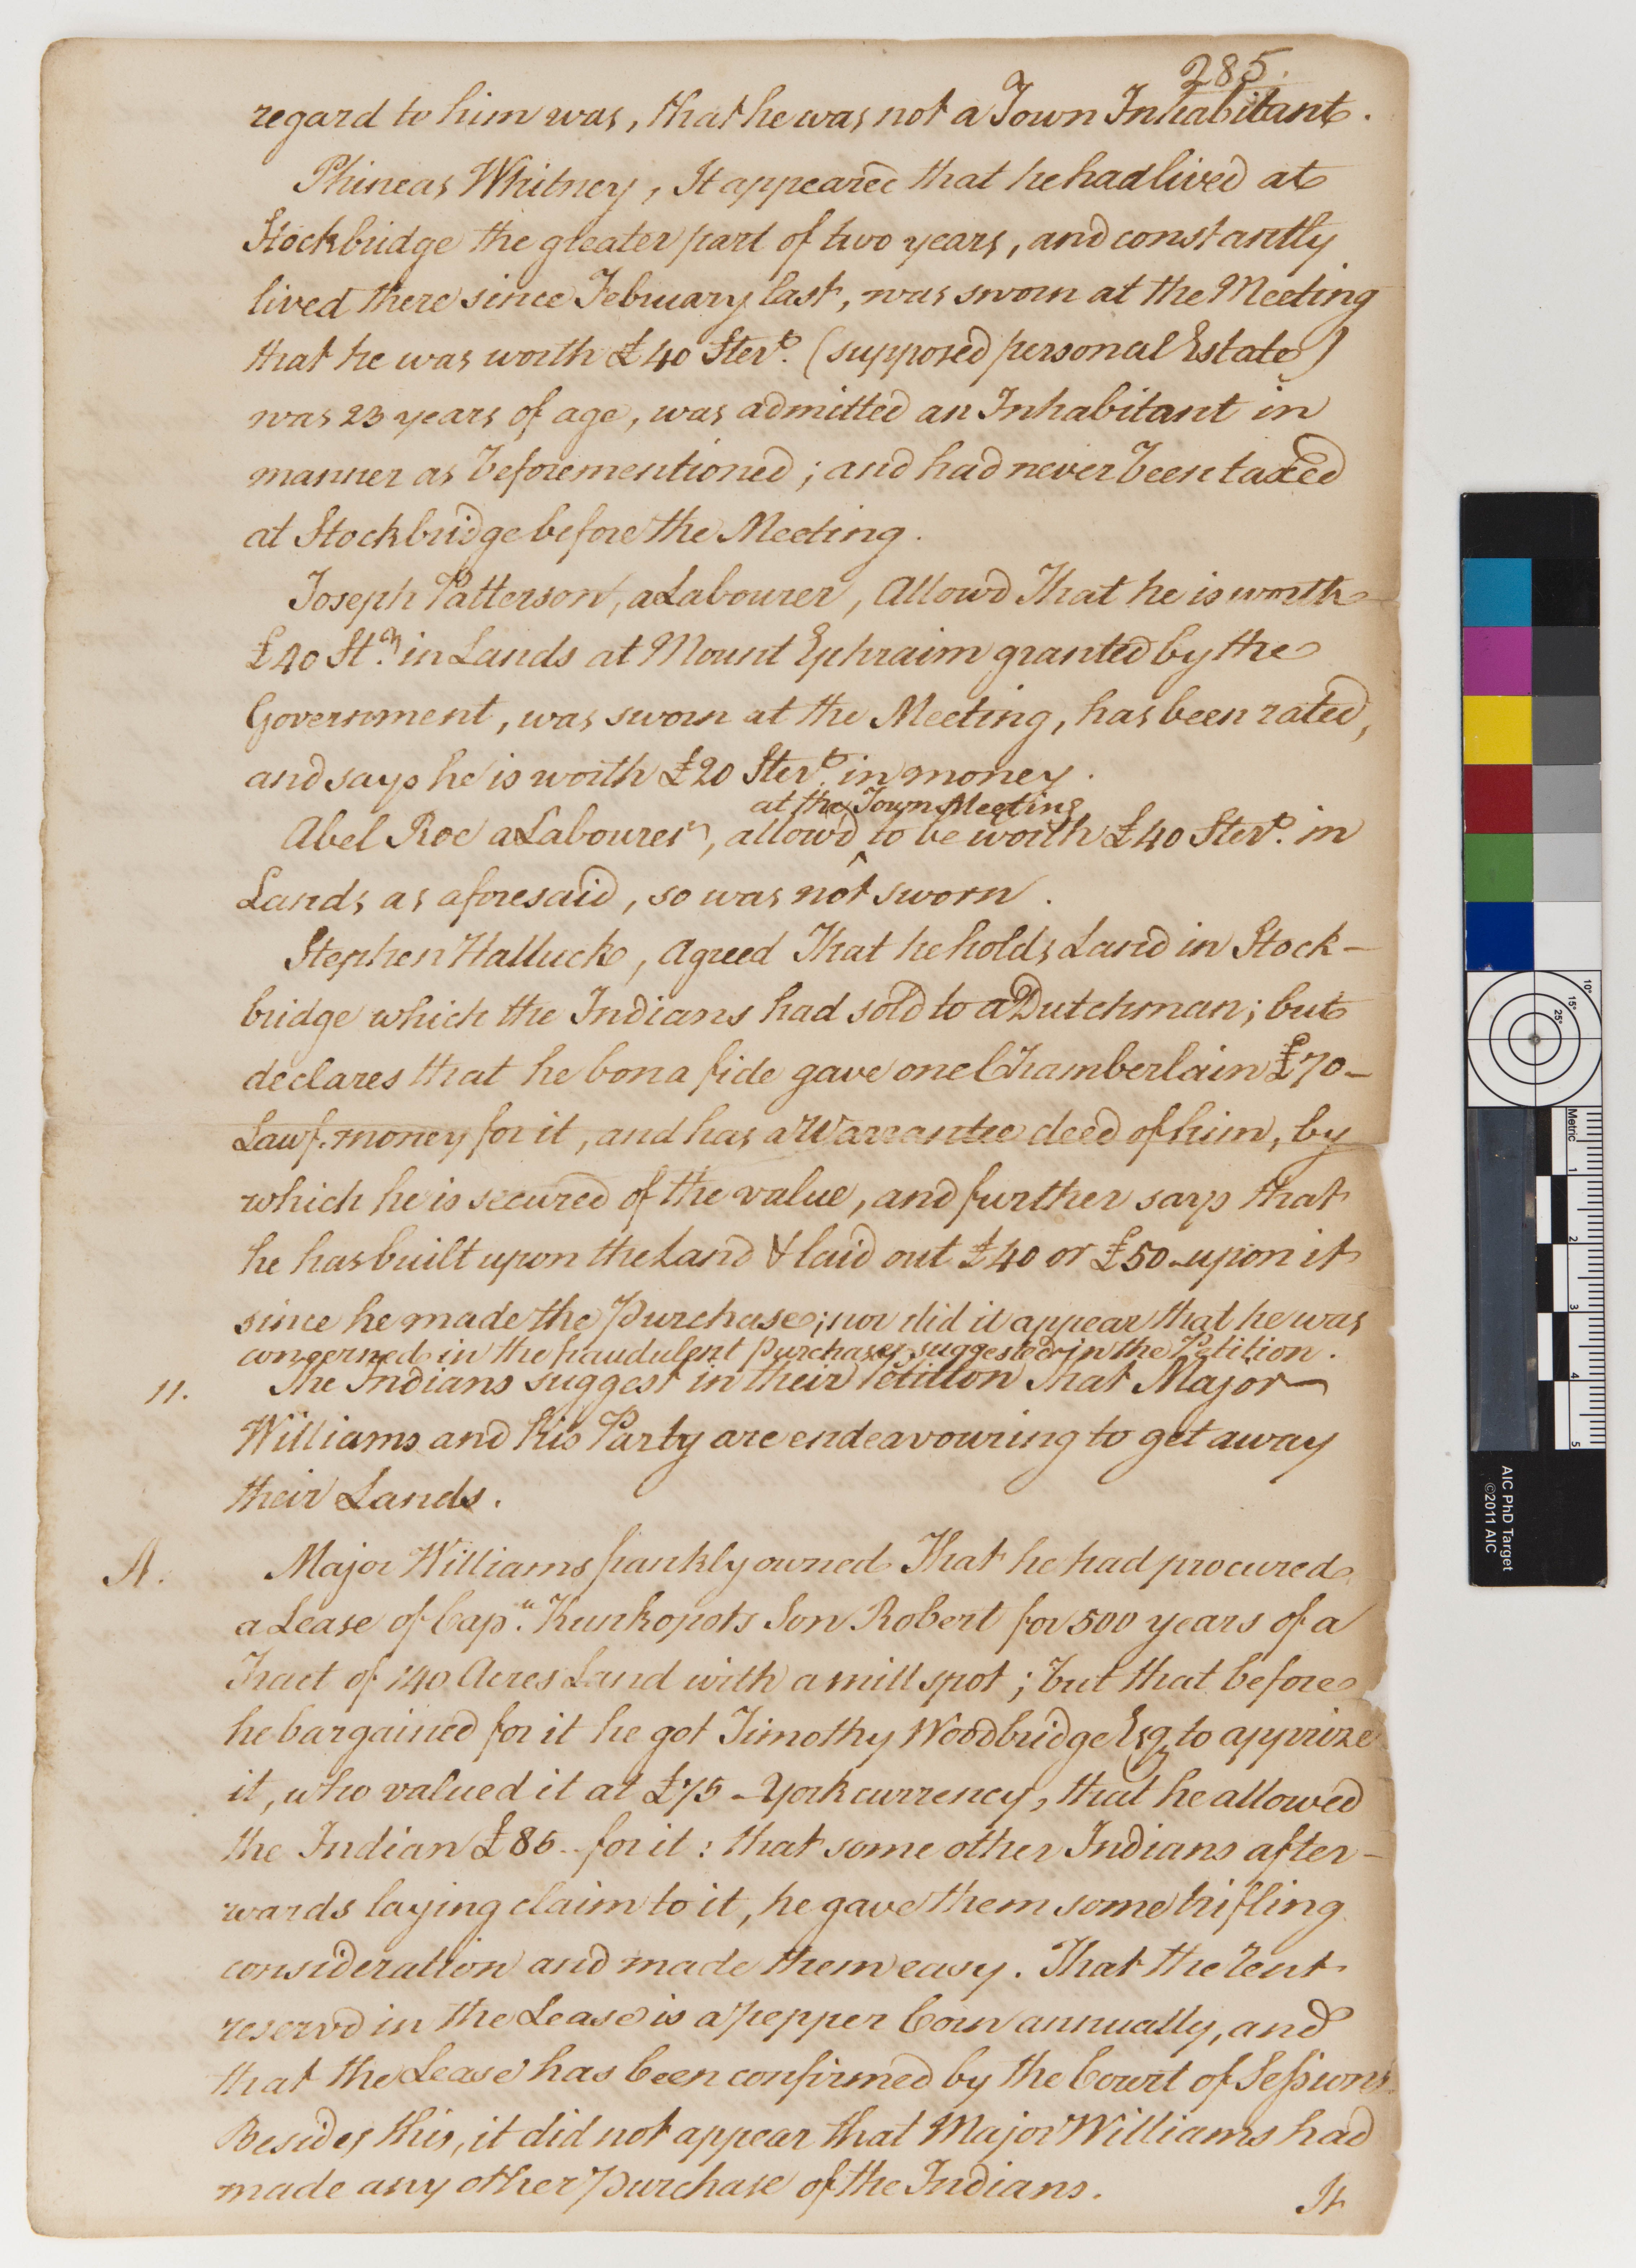 285.
regard to him was, that he was not a Town Inhabitant.
Phineas Whitney, It appeared that he had lived at
Stockbridge the greater part of two years, and constantly
lived there since February last, was sworn at the Meeting
that he was worth £40 Ster.g (supposed personal Estate)
was 23 years of age, was admitted an Inhabitant in
manner as beforementioned; and had never been taxed
at Stockbridge before the Meeting.
Joseph Patterson, a Labourer, Allowd That he is worth
£40 St.g in Lands at Mount Ephraim granted by the
Government, was sworn at the Meeting, has been rated,
and says he is worth £20 Ster.g in money.
at the Town Meeting
Abel Roe a Labourer, allow'd ^ to be worth £40 Ster.g in
Lands as aforesaid, so was not sworn.
Stephen Halluck, Agreed That he holds Land in Stock-
bridge which the Indians had sold to a Dutchman; but
declares that he bona fide gave one Chamberlain £70-
Lawf. money for it, and has a Warrantee deed of him, by
which he is secured of the value, and further says that
he has built upon the Land & laid out £40 or £50- upon it
since he made the Purchase; nor did it appear that he was
concerned in the fraudulent Purchases suggested in the Petition.
11. The Indians suggest in their Petition That Major
Williams and his Party are endeavouring to get away
their Lands.
A. Major Williams frankly owned That he had procured
a Lease of Cap.n Kunkopots Son Robert for 500 years of a
Tract of 140 Acres Land with a mill spot; but that before
he bargained for it he got Timothy Woodbridge Esq to apprize
it, who valued it at £75- York currency, that he allowed
the Indian £85-- for it: that some other Indians after-
wards laying claim to it, he gave them some trifling
consideration and made them easy. That the rent
reserv'd in the Lease is a pepper Corn annually, and
that the Lease has been confirmed by the Court of Sessions.
Besides this, it did not appear that Major Williams had
made any other Purchase of the Indians.
It
10°
15°
25°
Metric
1
2
3
4
5
AIC PhD Target
©2011 AIC